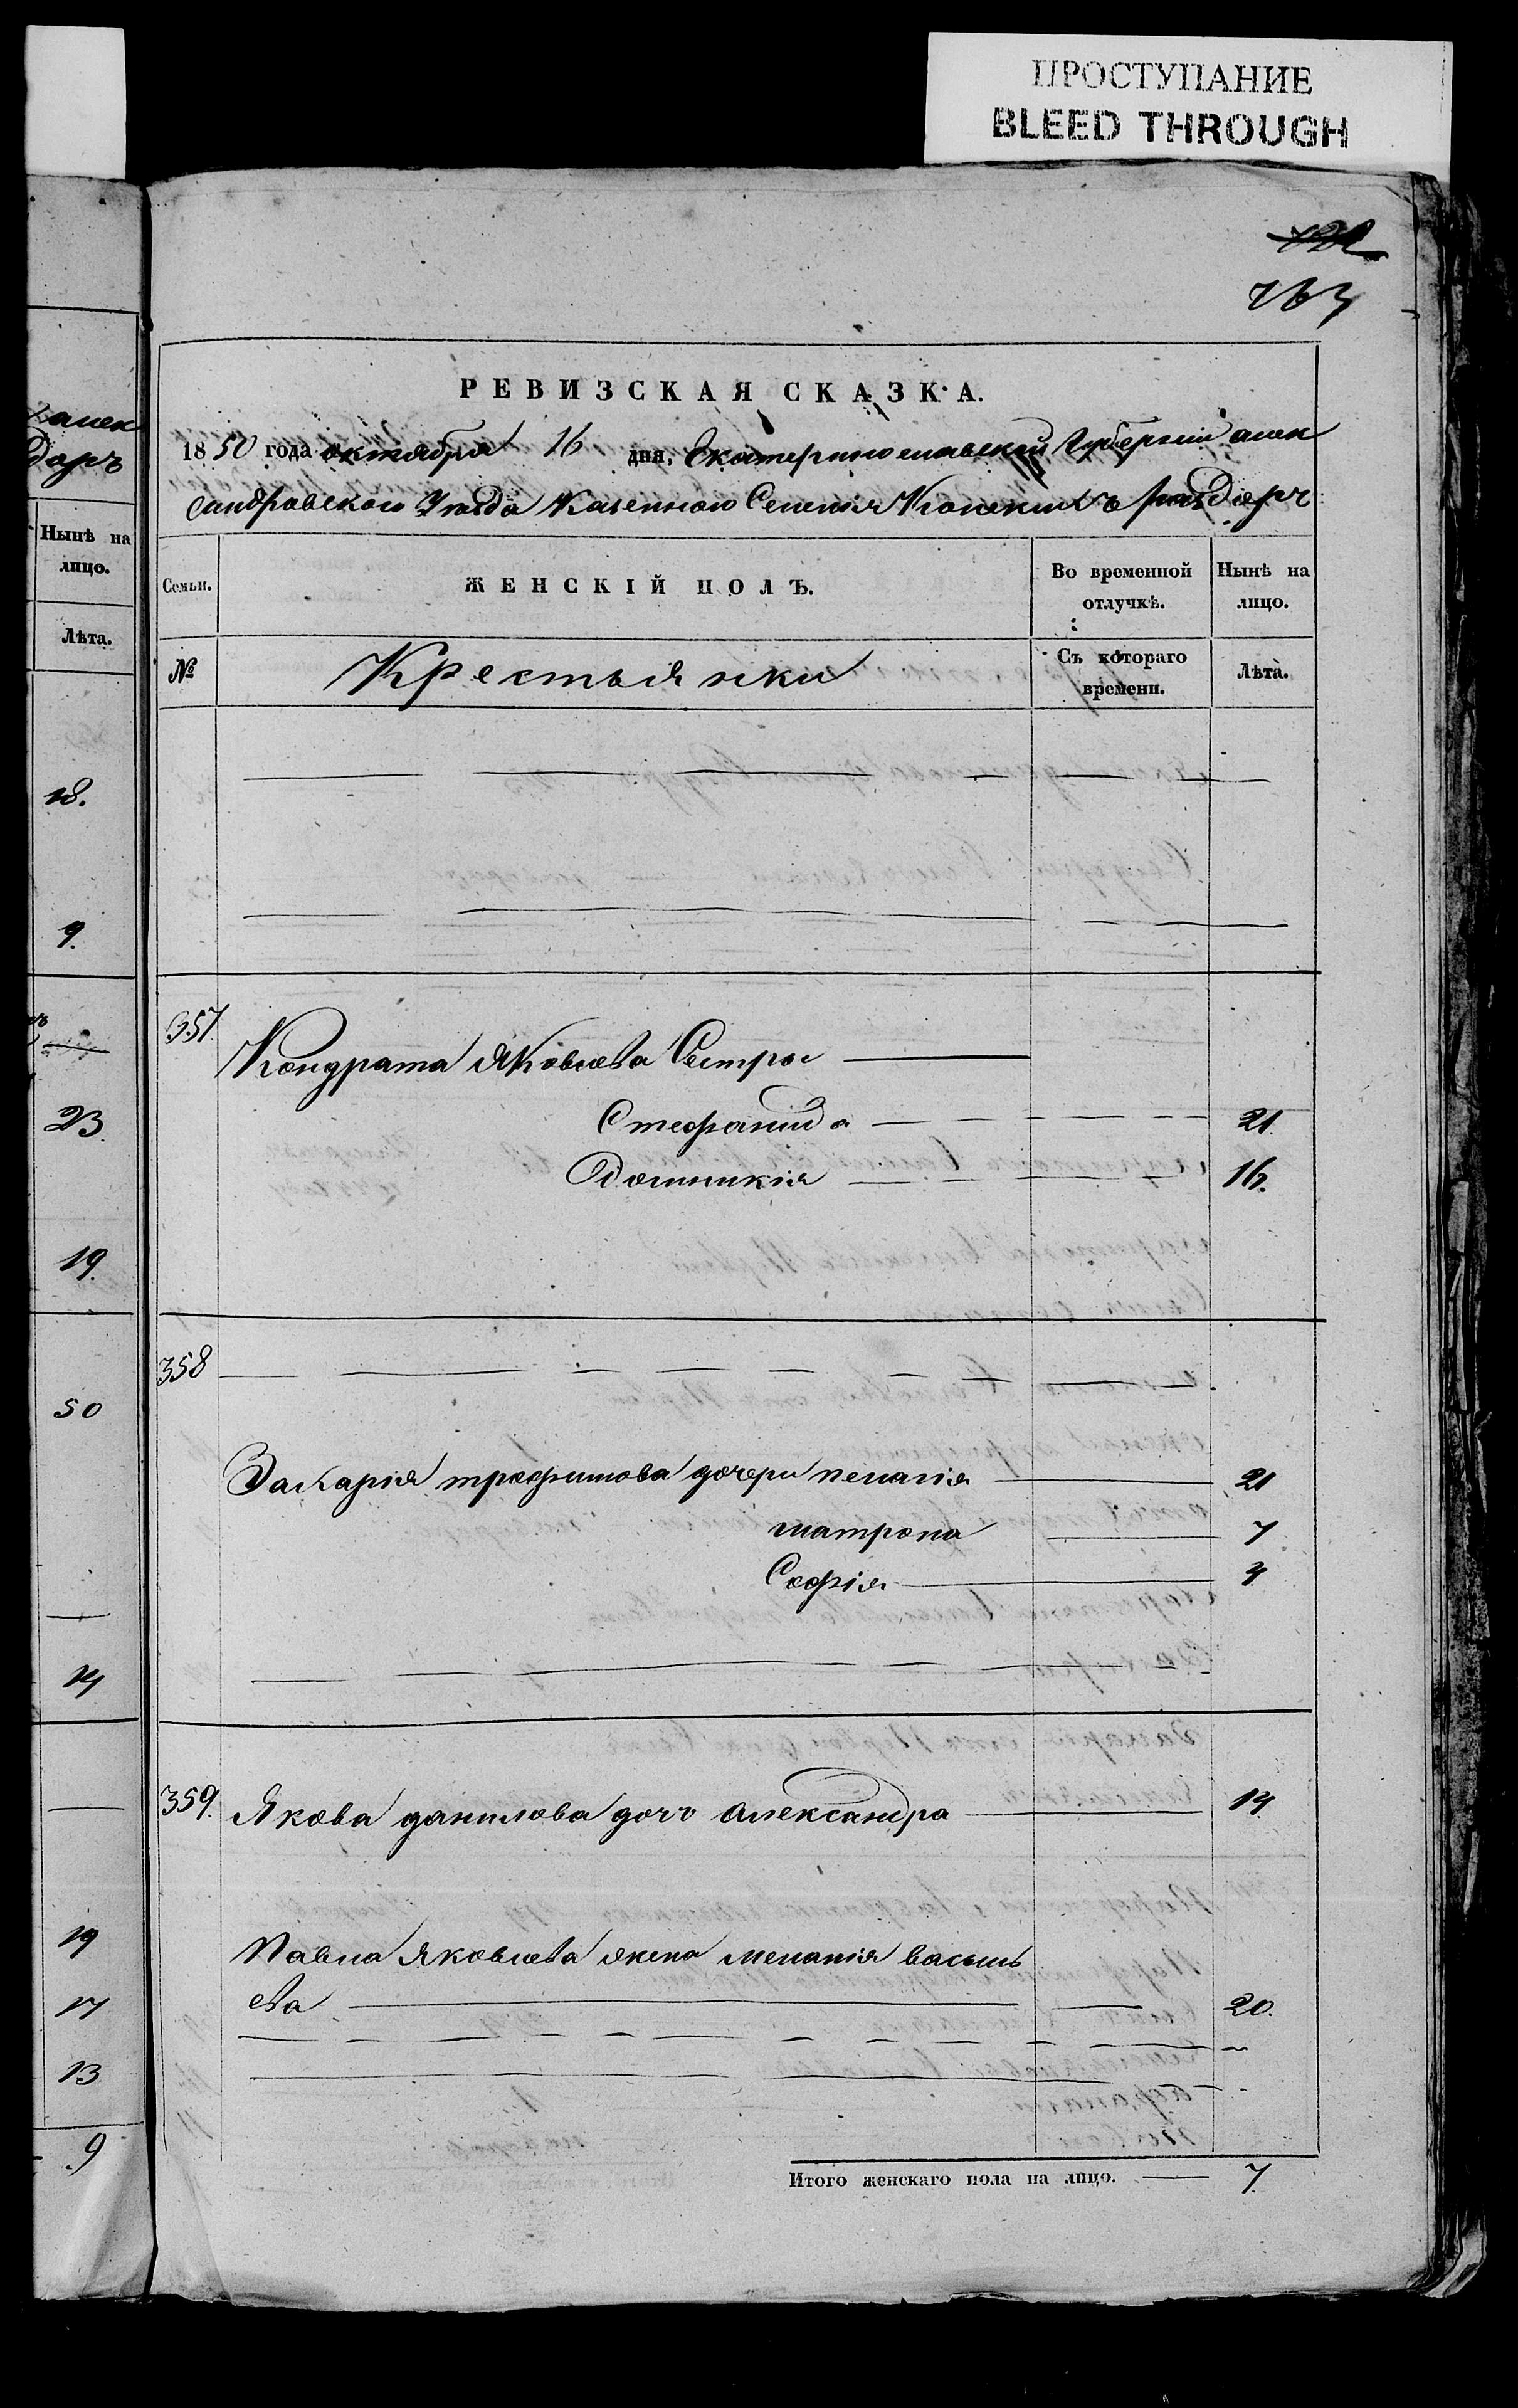 ПРОСТУПАНИЕ
BLEED THROUGH
763
РЕВИЗСКАЯ СКАЗКА.
1850 года октября 16 дня, Екатеринославской Губернии алек
сандровского Уезда Казенного Селения Конских ъ раздоръ
Семьи.
ЖЕНСКІЙ ПОЛЪ.
Во временной отлучкѣ.
Нынѣ на лицо.
№
Крестьянки
Съ котораго времени.
Лѣта.
357.
Кондрата Яковлева Сестры
Стефанида 21.
Домникія 16.
358
Захарія трофимова дочери пелагія 21
матрона 7
Софія 4
359. Якова данилова дочь александра 14.
Павла Яковлева жена меланія василь
ева 20.
Итого женскаго пола на лицо. 7.
алек
доръ
Нынѣ на
лицо.
Лѣта.
18.
9.
23.
19.
50
14
19
17
13
9